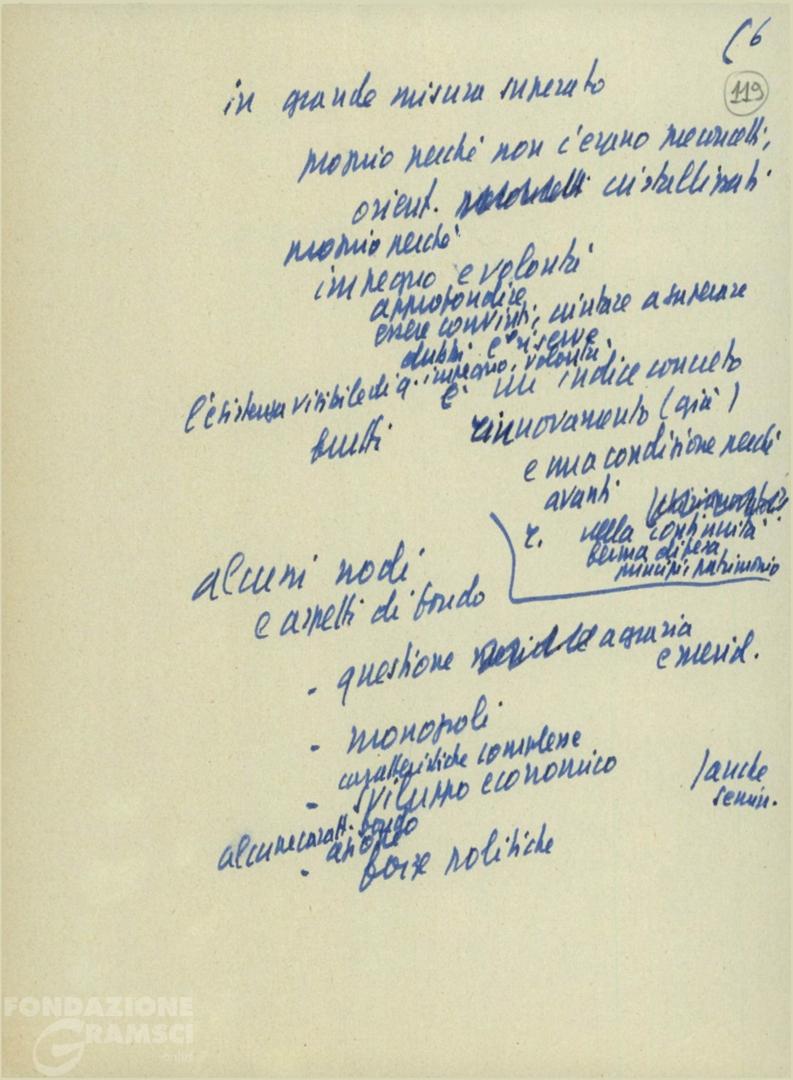 (6
119
in grande misura superato
proprio perché non c'erano preconcetti,
orient. cristallizzati
proprio perché
impegno e volontà
approfondire
essere convinti, aiutare a superare
dubbi e riserve
l'esistenza visibile di q. impegno, volontà,
è un indice concreto
frutti rinnovamento (già)
e una condizione perché
avanti
r. nella continuità
ferma difesa
principi, patrimonio
alcuni nodi
e aspetti di fondo
- questione agraria
e merid.
- monopoli
caratteristiche complesse
- sviluppo economico
(anche
semin.
alcune caratt. fondo
- azione
forze politiche
FONDAZIONE
GRAMSCI
onlus